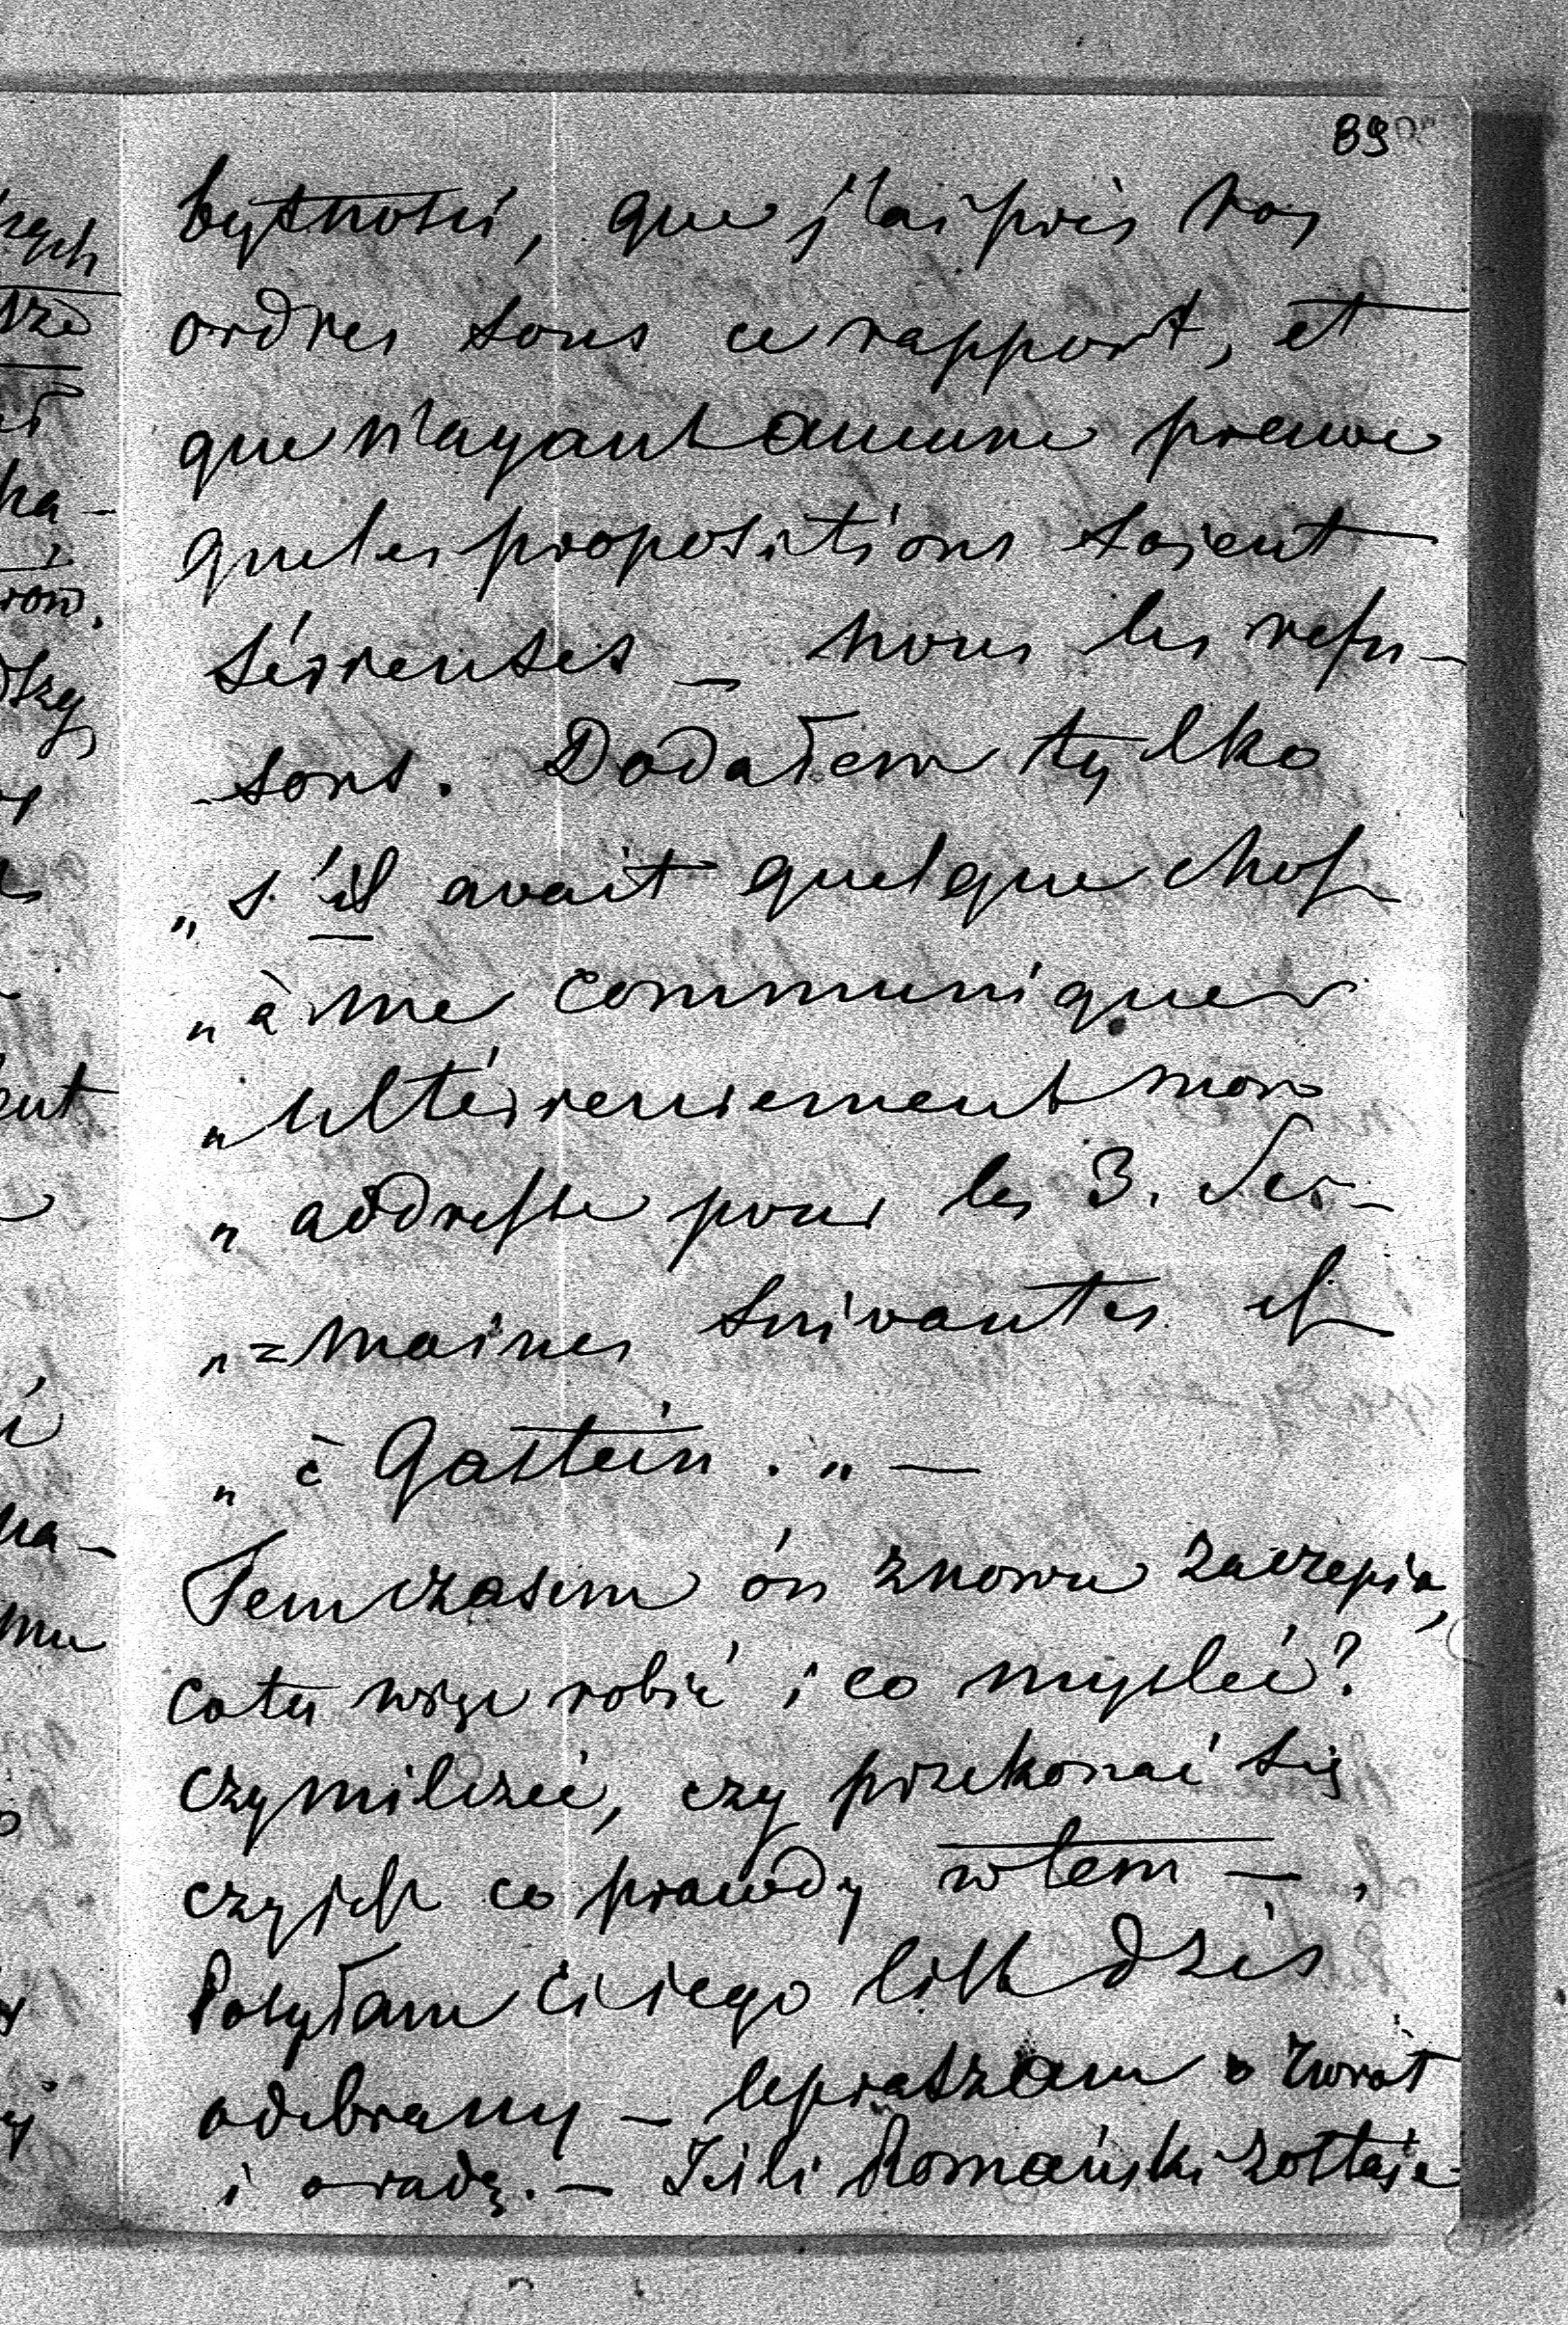 89
bytności, que j'ai pris vos
ordres sous ce rapport, et
que n'ayant aucune preuve
que les propositions soient
sérieuses _ nous les refu-
-sons. Dodałem tylko
„ s'il avait quelque chose
„ à me communiquer
„ ultérieurement mon
„ addresse pour les 3. Se-
„ =maines suivantes est
„ à Gastein . „ —
Temczasem ón znowu zaczepia,
co tu więc robić i co myśleć?
czy milczeć, czy przekonać się
czy jest co prawdy w tem — .
Posyłam Ci jego list dziś
odebrany — upraszam o zwrot
i o radę. — Jeśli Romański zostaje